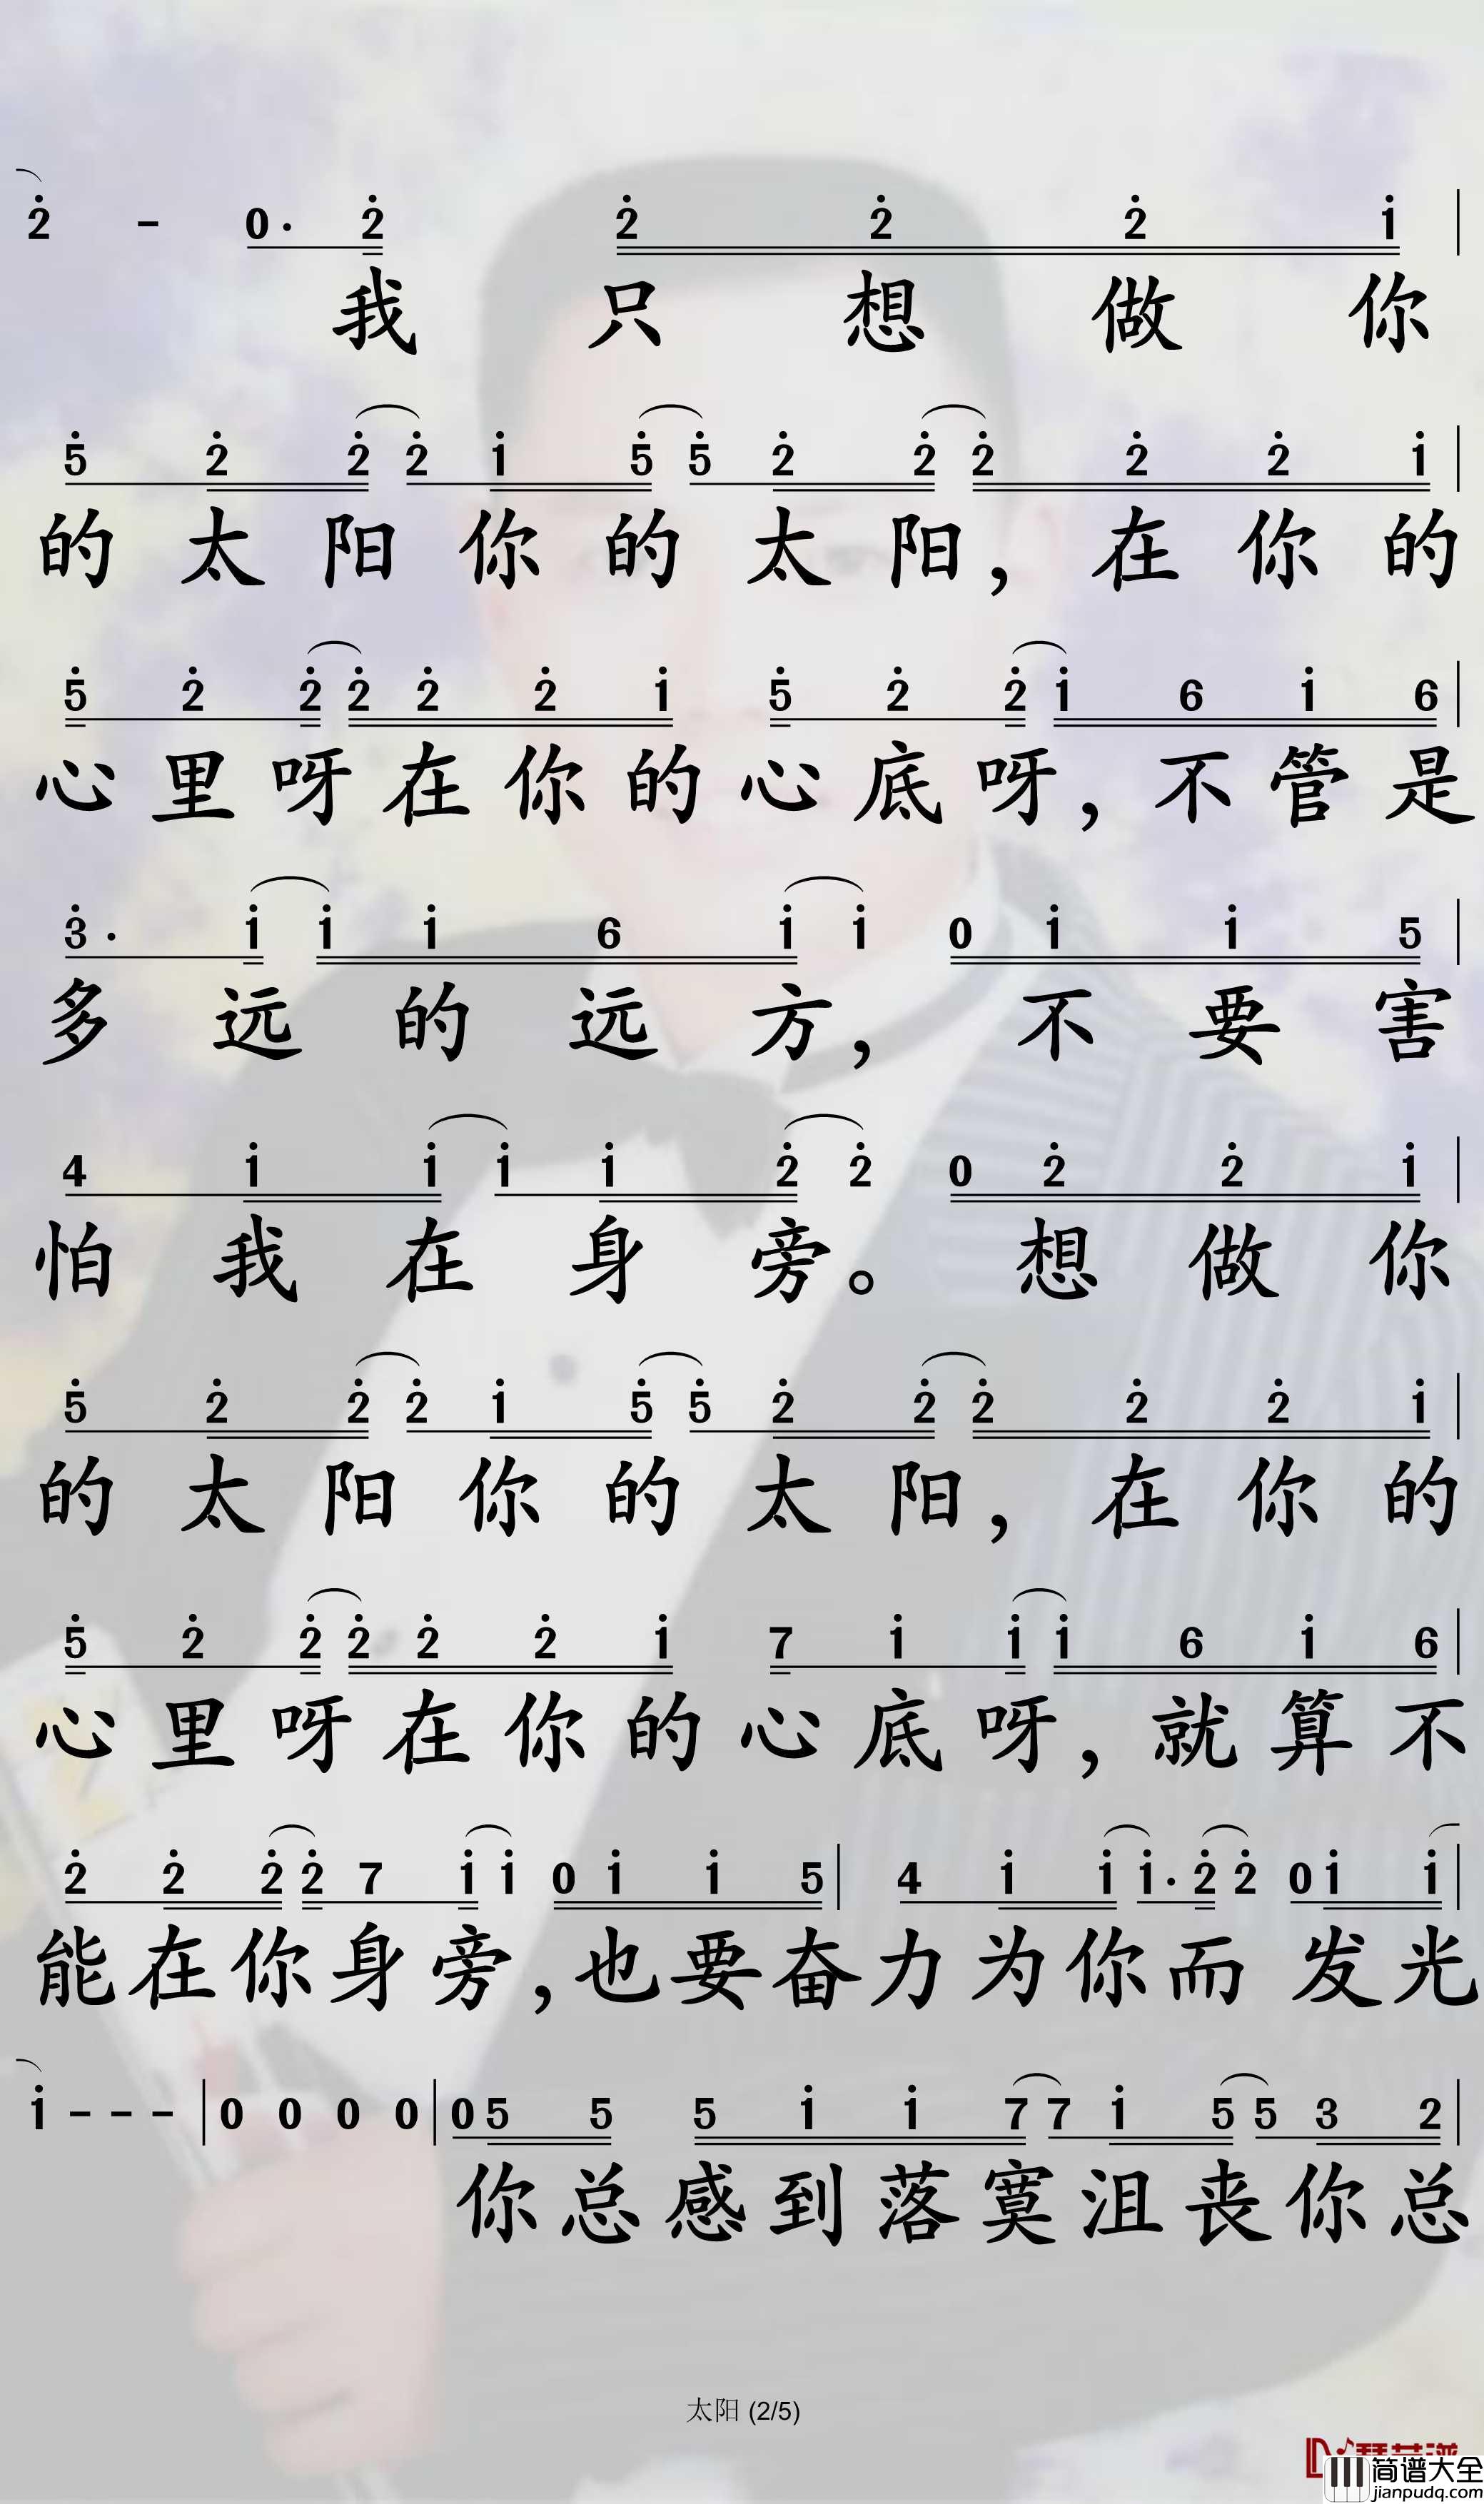 2 - 0. 2 2 2 2 1
我 只 想 做 你
5 2 2 2 1 5 5 2 2 2 2 2 1
的 太 阳 你 的 太 阳, 在 你 的
5 2 2 2 2 2 1 5 2 2 1 6 1 6
心 里 呀 在 你 的 心 底 呀, 不 管 是
3. 1 1 1 6 1 1 0 1 1 5
多 远 的 远 方, 不 要 害
4 1 1 1 1 2 2 0 2 2 1
怕 我 在 身 旁。 想 做 你
5 2 2 2 1 5 5 2 2 2 2 2 1
的 太 阳 你 的 太 阳, 在 你 的
5 2 2 2 2 2 1 7 1 1 1 6 1 6
心 里 呀 在 你 的 心 底 呀, 就 算 不
2 2 2 2 7 1 1 0 1 1 5 | 4 1 1 1. 2 2 0 1 1
能 在 你 身 旁, 也 要 奋 力 为 你 而 发 光
1 - - - | 0 0 0 0 | 0 5 5 5 1 1 7 7 1 5 5 3 2
你 总 感 到 落 寞 沮 丧 你 总
太阳 (2/5)
简谱大全
jianpudq.com